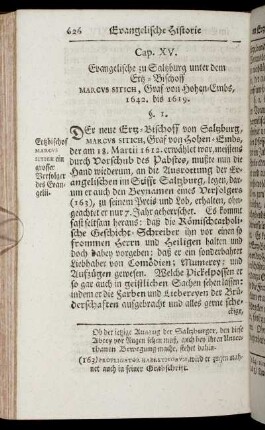 626 Evangelische Historie
Cap. XV.
Evangelische zu Saltzburg unter dem
Ertz-Bischoff
MARCVS SITICH, Graf von Hohen-Embs,
1640. bis 1619.
§. 1.
Der neue Ertz-Bischoff von Saltzburg,
Ertzbischof
MARCVS SITICH, Graf von Hohen-Embs,
MARCVS
der am 18. Martii 1612. erwählet war, meistens
SITICH ein
durch Vorschub des Pabstes, mußte nun die
grosser
Hand wiederum, an die Ausrottung der Ev-
Verfolger
angelischen im Stifft Saltzburg, legen, dar-
des Evan-
um er auch den Beynamen eines Verfolgers
gelii.
(163), zu seinem Preis und Lob, erhalten, oh-
geachtet er nur 7. Jahr geherrschet. Es kommt
fast seltsam heraus: daß die Römischcatholi-
sche Geschicht-Schreiber ihn vor einen so
frommen Herrn und Heiligen halten und
doch dabey vorgeben; daß er ein sonderbahrer
Liebhaber von Comödien, Mummerey und
Aufzügen gewesen. Welche Pickelpossen er
so gar auch in geistlichen Sachen sehen lassen:
indem er die Farben und Liebereyen der Brü-
derschaften aufgebracht und alles gerne sche-
ckige,
Ob der jetzige Auszug der Saltzburger, den diese
Abtey vor Augen sehen muß, auch bey ihren Unter-
thanen Bewegung mache, stehet dahin.
net auch in seiner Grabschrift.